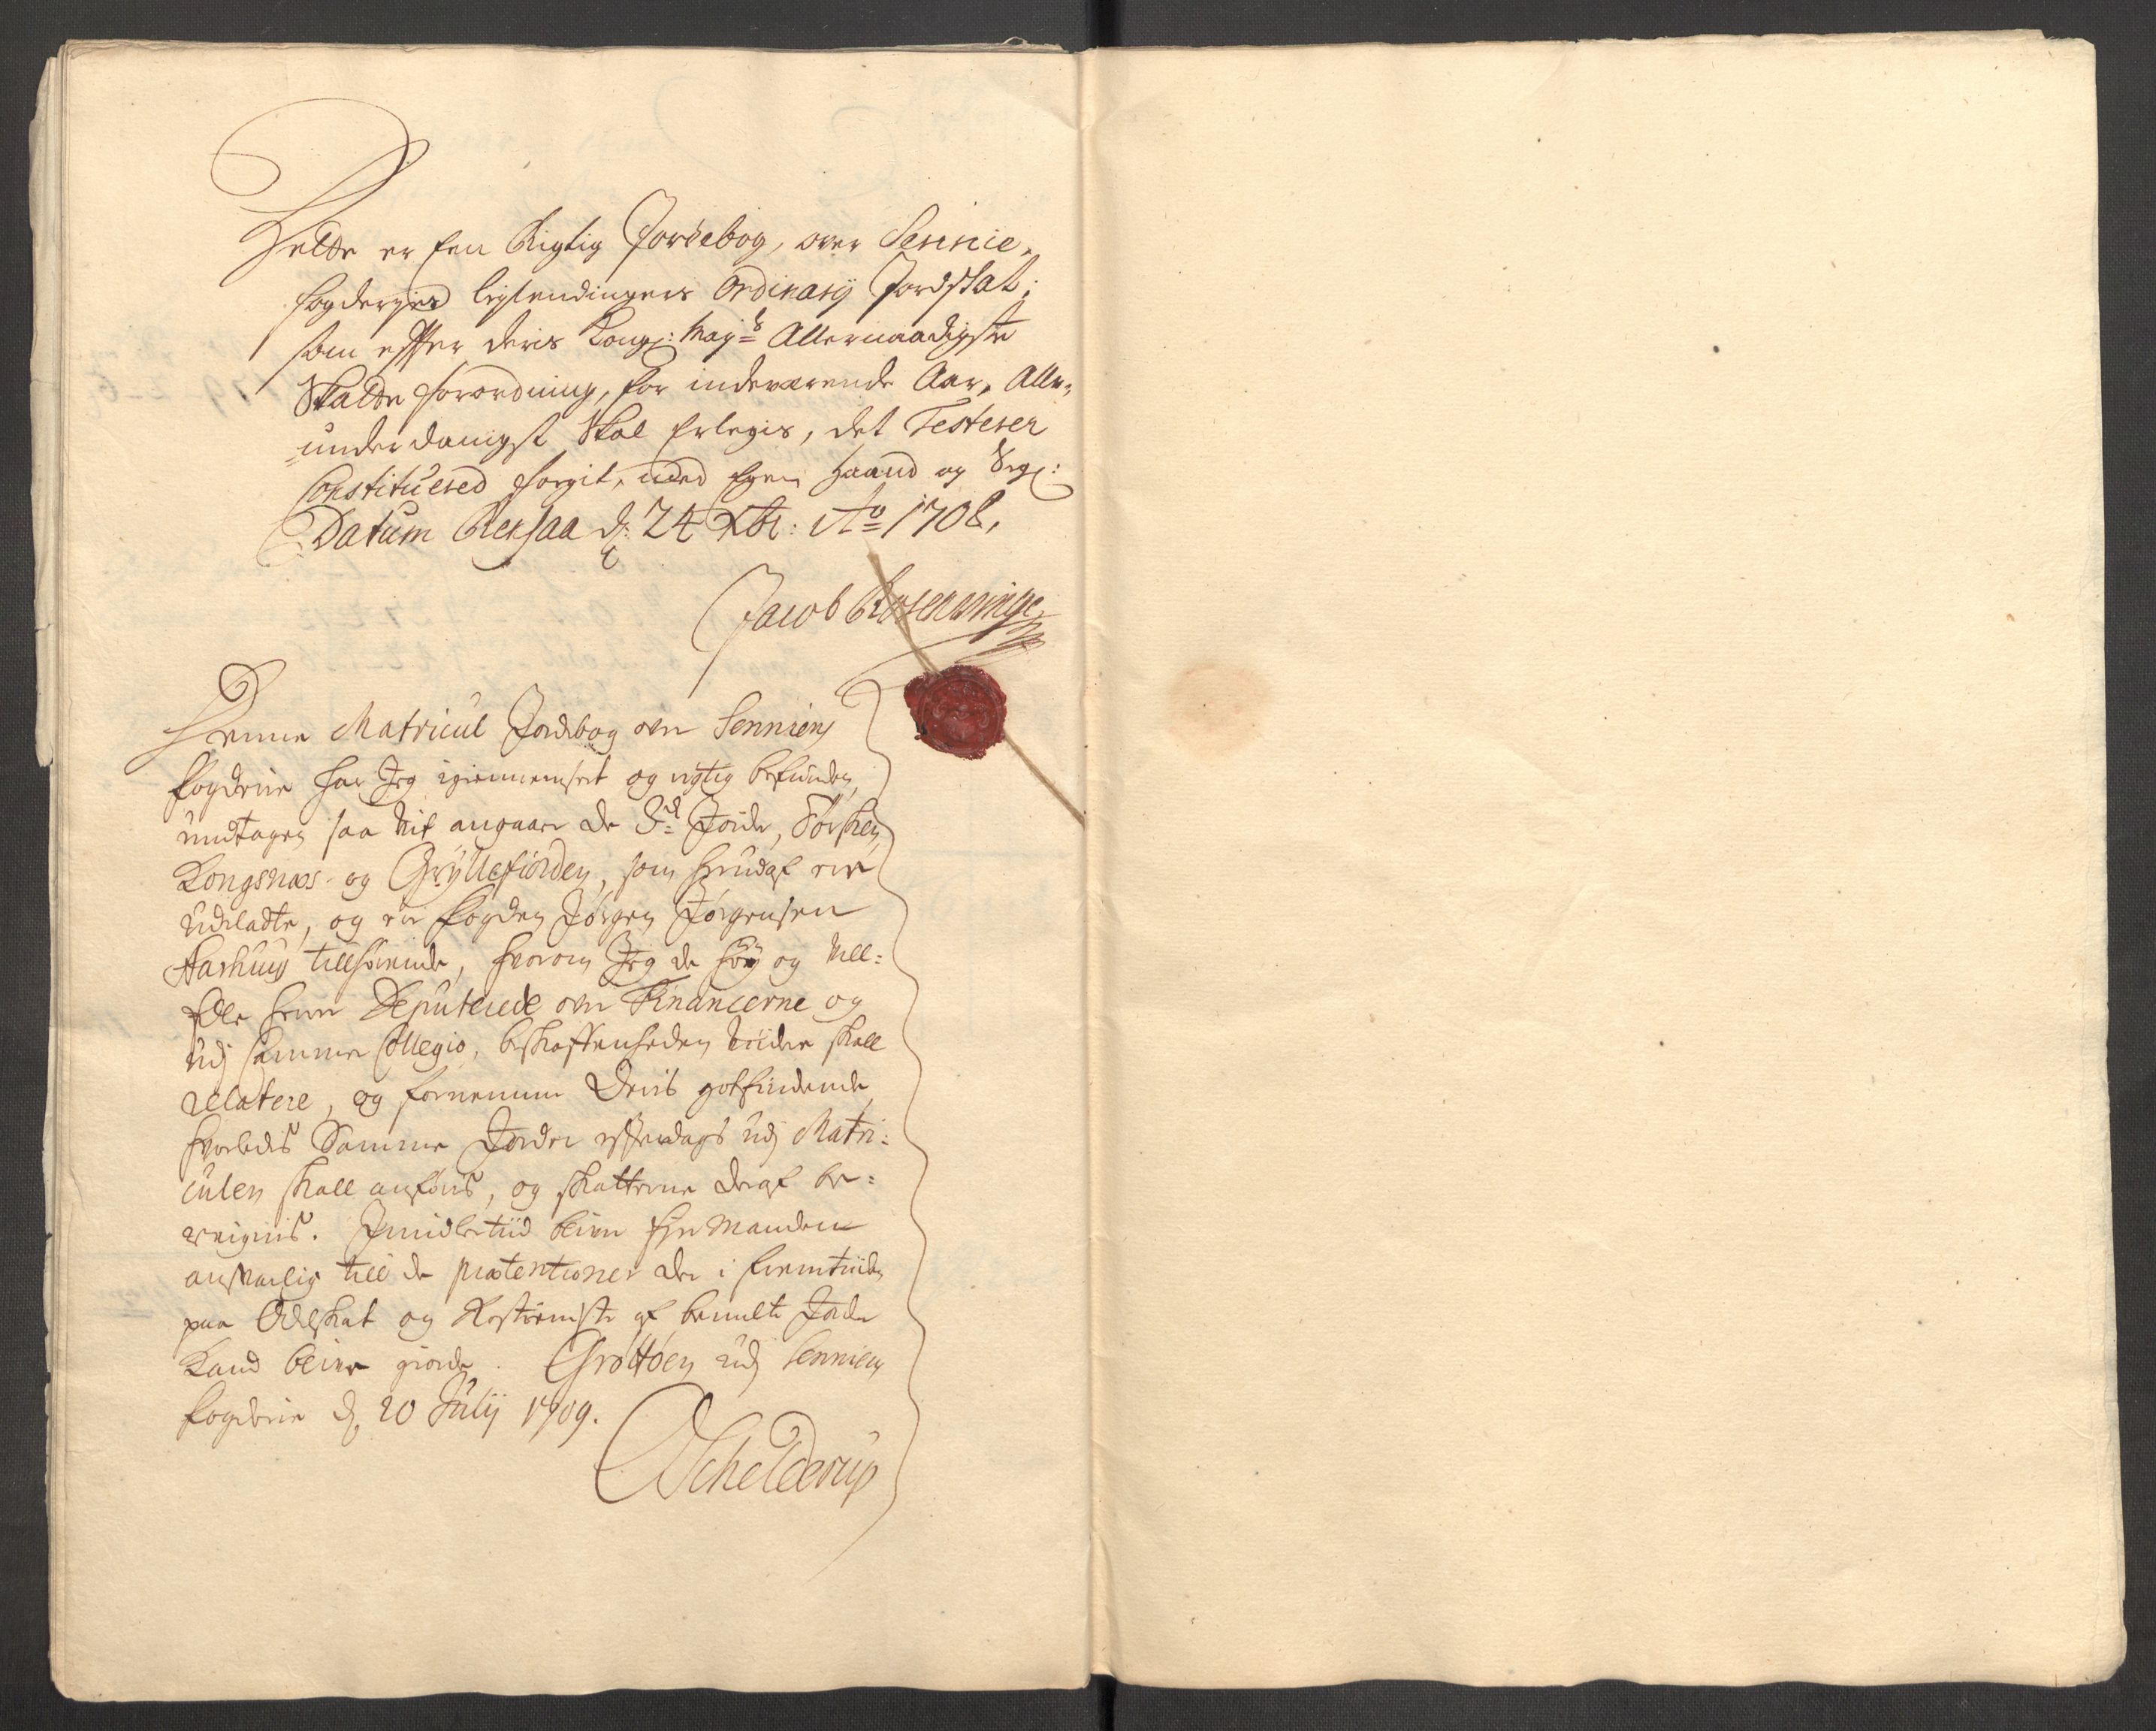 Dette er Een Rigtig Jordebog, over Sennie-
fogderies leylendingers Ordinarij Jordskat;
som effter deris Kongl: May:ts Allernaadigste
Skatte forordning, for indeværende Aar, Aller-
underdanigst Skal Erlegis, det Testerer
Constituered forgit, med Egen Haand og Segl:
Datum Reksaa d: 24 Xbr: Ao 1708,
Jacob Rosenwinge
Denne Matricul Jordebog over Senniens
fogderie har Jeg igiennemseet og rigtig befunden,
undtagen saa vit angaar de 3de Jorder, Torsken,
Kongsnæs og Gryllefiorden, som
udeladte, og er fogden Jørgen Jørgensen
Aarhuus tillhørende, hvorom Jeg de høy og vell-
Edle herrer Deputerede over Financerne og
udj Cammer Collegio, beskaffenheden viidere skall
relatere, og fornemme deris gotfindende
hvorledis Samme Jorder effterdags udj Matri-
culen skall anføris, og skatterne deraf be-
reignis. Imidlertiid bliver hr manden
ansvarlig till de prætentioner der i fremtiiden
paa Odelskat og Rostieniste af bemelte Jorder
Kand blive giorde. Grøttøen udj Senniens
fogderie d. 20 Julij 1709.
Schelderup